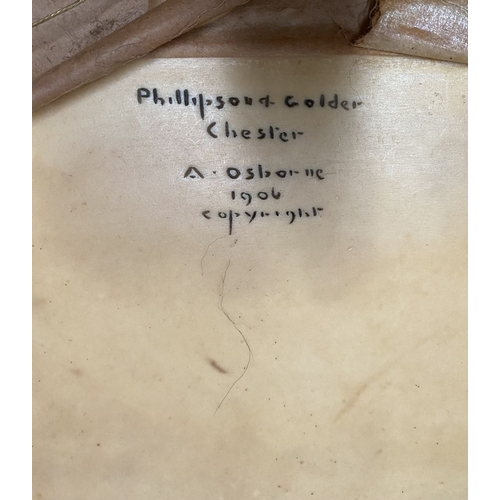 Phillipson & Golder
Chester
A. Osborne
1906
copyright